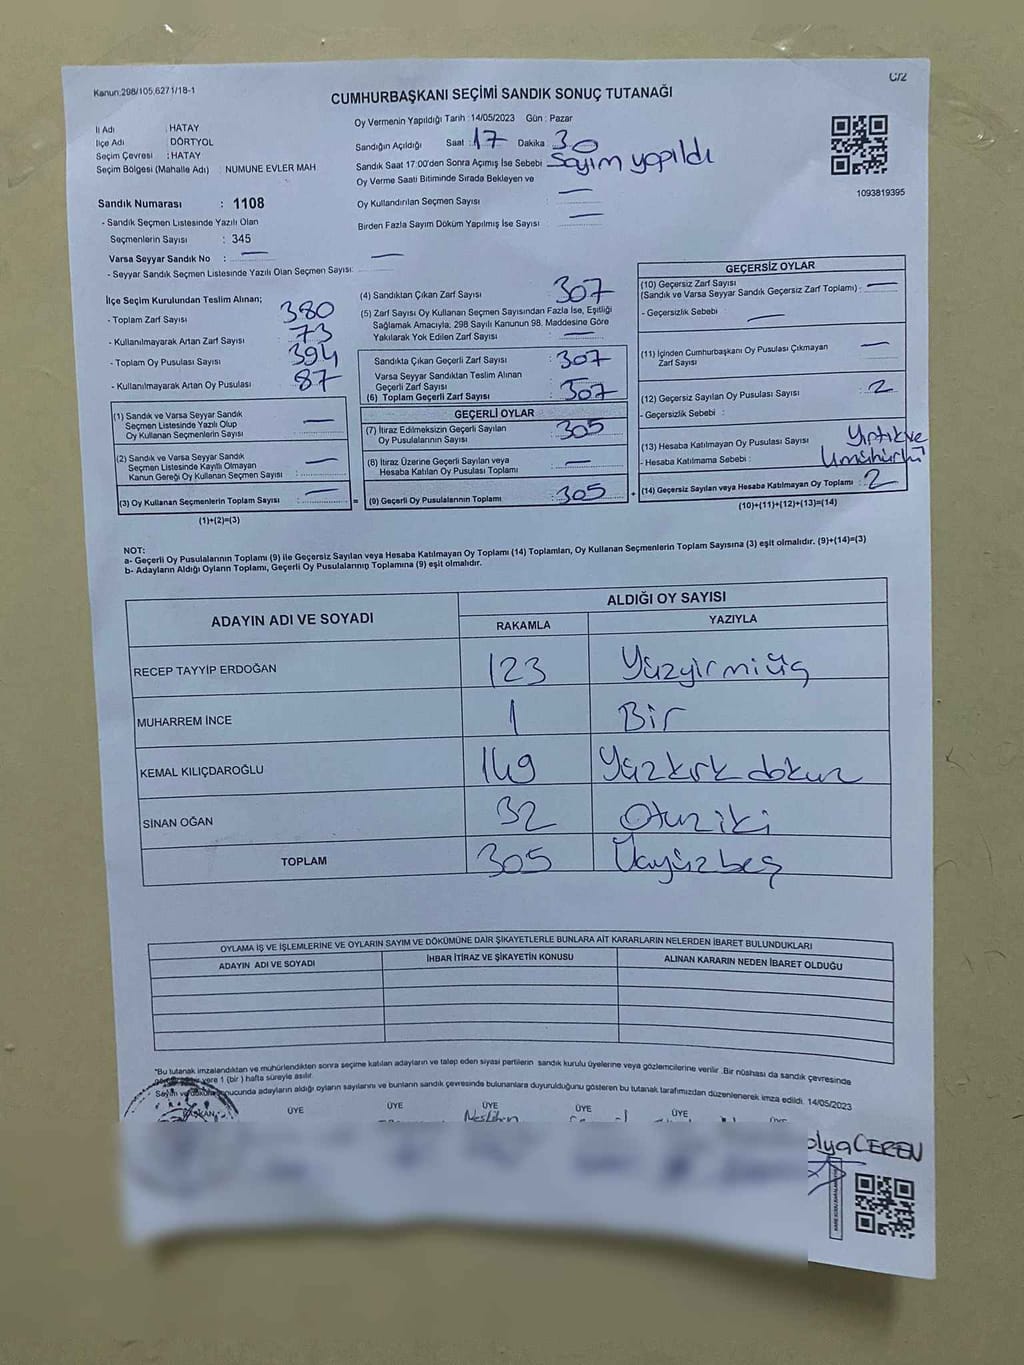 C/2
Kanun:298/105,6271/18-1
CUMHURBAŞKANI SEÇİMİ SANDIK SONUÇ TUTANAĞI
İl Adı : HATAY
İlçe Adı : DÖRTYOL
Seçim Çevresi : HATAY
Seçim Bölgesi (Mahalle Adı) : NUMUNE EVLER MAH
Oy Vermenin Yapıldığı Tarih : 14/05/2023 Gün : Pazar
Sandığın Açıldığı Saat : 17 Dakika : 30
Sandık Saat 17:00'den Sonra Açımış İse Sebebi : Sayım yapıldı
Oy Verme Saati Bitiminde Sırada Bekleyen ve
Oy Kullandırılan Seçmen Sayısı : —
Birden Fazla Sayım Döküm Yapılmış İse Sayısı : —
1093819395
Sandık Numarası : 1108
- Sandık Seçmen Listesinde Yazılı Olan
Seçmenlerin Sayısı : 345
Varsa Seyyar Sandık No : —
- Seyyar Sandık Seçmen Listesinde Yazılı Olan Seçmen Sayısı: —
İlçe Seçim Kurulundan Teslim Alınan;
- Toplam Zarf Sayısı : 380
- Kullanılmayarak Artan Zarf Sayısı : 73
- Toplam Oy Pusulası Sayısı : 394
- Kullanılmayarak Artan Oy Pusulası : 87
(1) Sandık ve Varsa Seyyar Sandık
Seçmen Listesinde Yazılı Olup
Oy Kullanan Seçmenlerin Sayısı : —
(2) Sandık ve Varsa Seyyar Sandık
Seçmen Listesinde Kayıtlı Olmayan
Kanun Gereği Oy Kullanan Seçmen Sayısı : —
(3) Oy Kullanan Seçmenlerin Toplam Sayısı : — =
(1)+(2)=(3)
(4) Sandıktan Çıkan Zarf Sayısı : 307
(5) Zarf Sayısı Oy Kullanan Seçmen Sayısından Fazla İse, Eşitliği
Sağlamak Amacıyla, 298 Sayılı Kanunun 98. Maddesine Göre
Yakılarak Yok Edilen Zarf Sayısı : —
Sandıkta Çıkan Geçerli Zarf Sayısı : 307
Varsa Seyyar Sandıktan Teslim Alınan
Geçerli Zarf Sayısı :
(6) Toplam Geçerli Zarf Sayısı : 307
GEÇERLİ OYLAR
(7) İtiraz Edilmeksizin Geçerli Sayılan
Oy Pusulalarının Sayısı : 305
(8) İtiraz Üzerine Geçerli Sayılan veya
Hesaba Katılan Oy Pusulası Toplamı : —
(9) Geçerli Oy Pusulalarının Toplamı : 305 +
GEÇERSİZ OYLAR
(10) Geçersiz Zarf Sayısı
(Sandık ve Varsa Seyyar Sandık Geçersiz Zarf Toplamı) : —
- Geçersizlik Sebebi : —
(11) İçinden Cumhurbaşkanı Oy Pusulası Çıkmayan
Zarf Sayısı : —
(12) Geçersiz Sayılan Oy Pusulası Sayısı : 2
- Geçersizlik Sebebi :
(13) Hesaba Katılmayan Oy Pusulası Sayısı : Yırtık ve
- Hesaba Katılmama Sebebi :
(14) Geçersiz Sayılan veya Hesaba Katılmayan Oy Toplamı : 2
(10)+(11)+(12)+(13)=(14)
NOT:
a- Geçerli Oy Pusulalarının Toplamı (9) ile Geçersiz Sayılan veya Hesaba Katılmayan Oy Toplamı (14) Toplamları, Oy Kullanan Seçmenlerin Toplam Sayısına (3) eşit olmalıdır. (9)+(14)=(3)
b- Adayların Aldığı Oyların Toplamı, Geçerli Oy Pusulalarının Toplamına (9) eşit olmalıdır.
ADAYIN ADI VE SOYADI
ALDIĞI OY SAYISI
RAKAMLA YAZIYLA
RECEP TAYYİP ERDOĞAN 123 Yüzyirmiüç
MUHARREM İNCE 1 Bir
KEMAL KILIÇDAROĞLU 149 Yüzkırk dokuz
SİNAN OĞAN 32 Otuziki
TOPLAM 305 Üçyüzbeş
OYLAMA İŞ VE İŞLEMLERİNE VE OYLARIN SAYIM VE DÖKÜMÜNE DAİR ŞİKAYETLERLE BUNLARA AİT KARARLARIN NELERDEN İBARET BULUNDUKLARI
ADAYIN ADI VE SOYADI İHBAR İTİRAZ VE ŞİKAYETİN KONUSU ALINAN KARARIN NEDEN İBARET OLDUĞU
*Bu tutanak imzalandıktan ve mühürlendikten sonra seçime katılan adayların ve talep eden siyasi partilerin sandık kurulu üyelerine veya gözlemcilerine verilir .Bir nüshası da sandık çevresinde
yere 1 (bir ) hafta süreyle asılır.
Sayım ve sonucunda adayların aldığı oyların sayılarını ve bunların sandık çevresinde bulunanlara duyurulduğunu gösteren bu tutanak tarafımızdan düzenlenerek imza edildi. 14/05/2023
BAŞKAN ÜYE ÜYE ÜYE ÜYE ÜYE ÜYE
CEREN